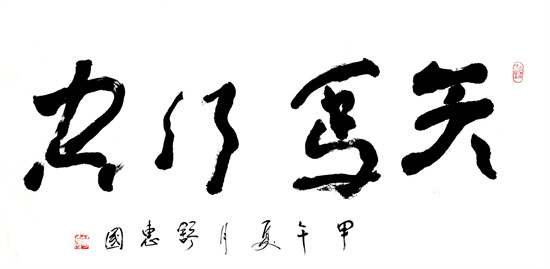 天馬行空
甲午夏月舒惠國